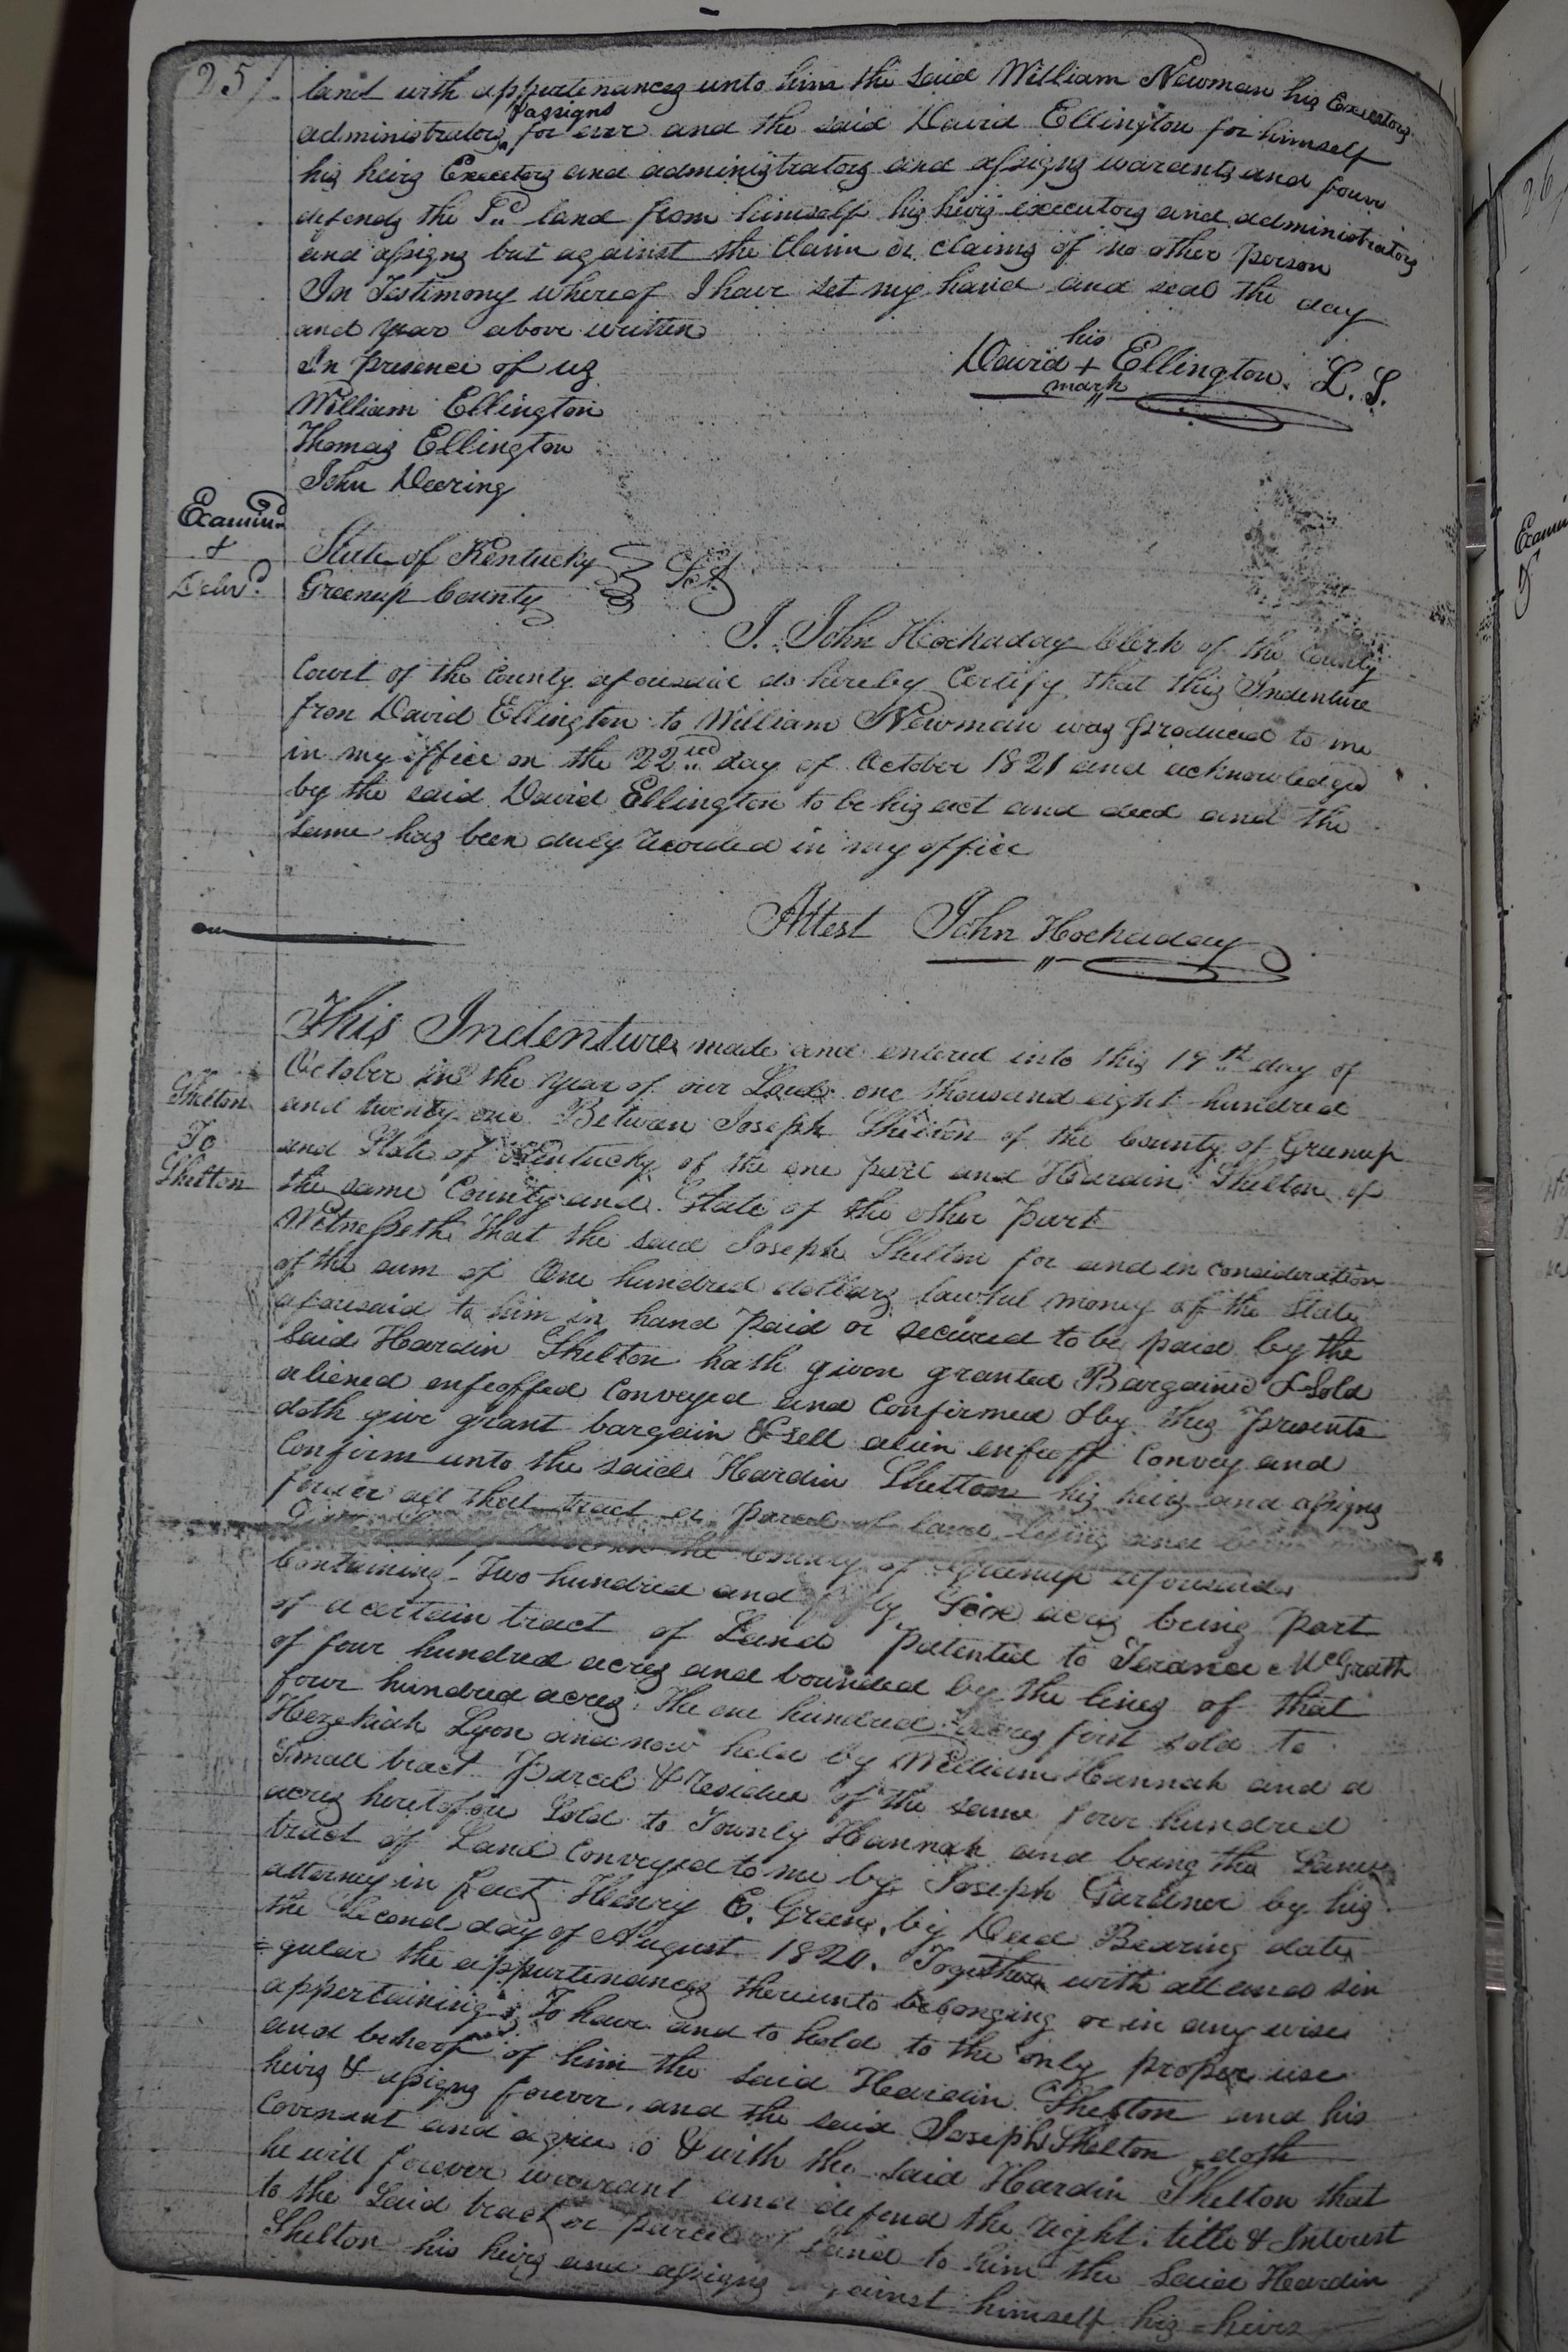 25
land with appurtenances unto him the said William Newman his Executors
& assigns
administrators for ever and the said David Ellington for himself
his heirs Executors and administrators and assigns warants and forever
defends the Sd land from himself his heirs executors and administrators
and assigns but against the Claim or claims of no other person
In Testimony whereof I have set my hand and seal the day
and year above written
In presence of us
his
David + Ellington L. S.
mark
William Ellington
Thomas Ellington
John Deering
Examind
&
Delivd
State of Kentucky
Greenup County } Sct
I. John Hockaday Clerk of the County
Court of the County aforesaid do hereby Certify that this Indenture
from David Ellington to William Newman was produced to me
in my office on the 22nd day of October 1821 and acknowledged
by the said David Ellington to be his act and deed and the
same has been duly recorded in my office
Attest John Hockaday
This Indenture made and entered into this 19th day of
October in the year of our Lord one thousand eight hundred
Shelton
To
Shelton
and twenty one Between Joseph Shelton of the County of Greenup
and State of Kentucky of the one part and Hardin Shelton of
the same County and State of the other part
Witnesseth that the said Joseph Shelton for and in consideration
of the sum of One hundred dollars lawful money of the State
aforesaid to him in hand paid or secured to be paid by the
said Hardin Shelton hath given granted Bargained & Sold
aliened enfeoffed Conveyed and Confirmed & by this presents
doth give grant bargain & sell alien enfeoff Convey and
Confirm unto the said Hardin Shelton his heirs and assigns
forever all that tract or parcel of land lying and being
in the County of Greenup aforesaid
Containing Two hundred and acres being part
of a certain tract of Land patented to Terance McGrath
of four hundred acres and bounded by the lines of that
four hundred acres. The one hundred acres first sold to
Hezekiah Lyon and now held by William Hannah and a
Small tract parcel & residue of the same four hundred
acres heretofore Sold to Townly Hannah and being the Same
tract of Land Conveyed to me by Joseph Gardner by his
attorney in fact Henry E. Green, by Deed Bearing date
the Second day of August 1820. Together with all and sin
=gular the appurtenances thereunto belonging or in any wise
appertaining; To have and to hold to the only proper use
and behoof of him the said Hardin Shelton and his
heirs & assigns forever. and the said Joseph Shelton doth
Covenant and agree to & with the said Hardin Shelton that
he will forever warrant and defend the right, title & Interest
to the Said tract or parcel of Land to him the said Hardin
Shelton his heirs and assigns against himself his heirs
26
Examin
&